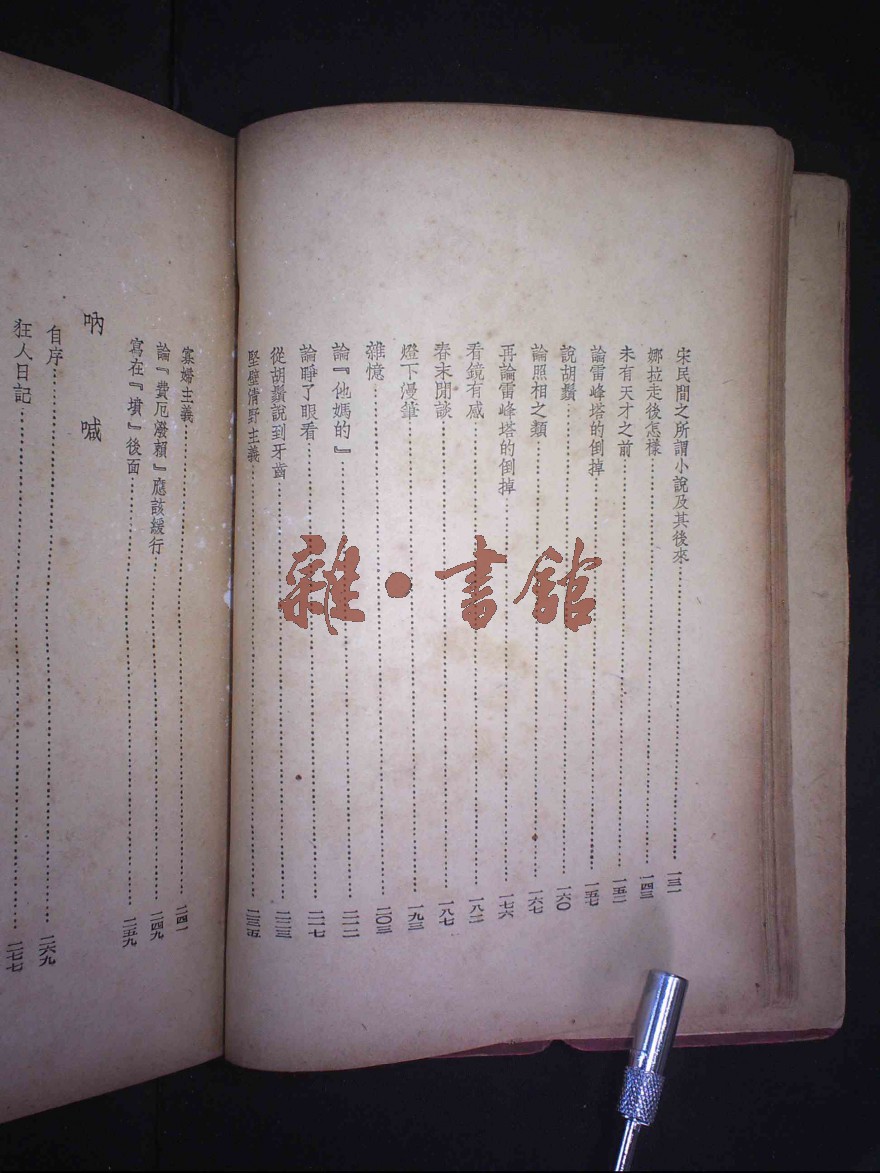 宋民間之所謂小說及其後來……一三一
娜拉走後怎樣……一四三
未有天才之前……一五二
論雷峰塔的倒掉……一五七
說胡鬚……一六〇
論照相之類……一六七
再論雷峰塔的倒掉……一七六
看鏡有感……一八二
春末閒談……一八七
燈下漫筆……一九三
雜憶……二〇三
論『他媽的』……二一二
論睜了眼看……二一七
從胡鬚說到牙齒……二二三
堅壁清野主義……二三五
寡婦主義……二四一
論『費厄潑賴』應該緩行……二四九
寫在『墳』後面……二五九
吶喊
自序……二六九
狂人日記……二七七
雜·書館